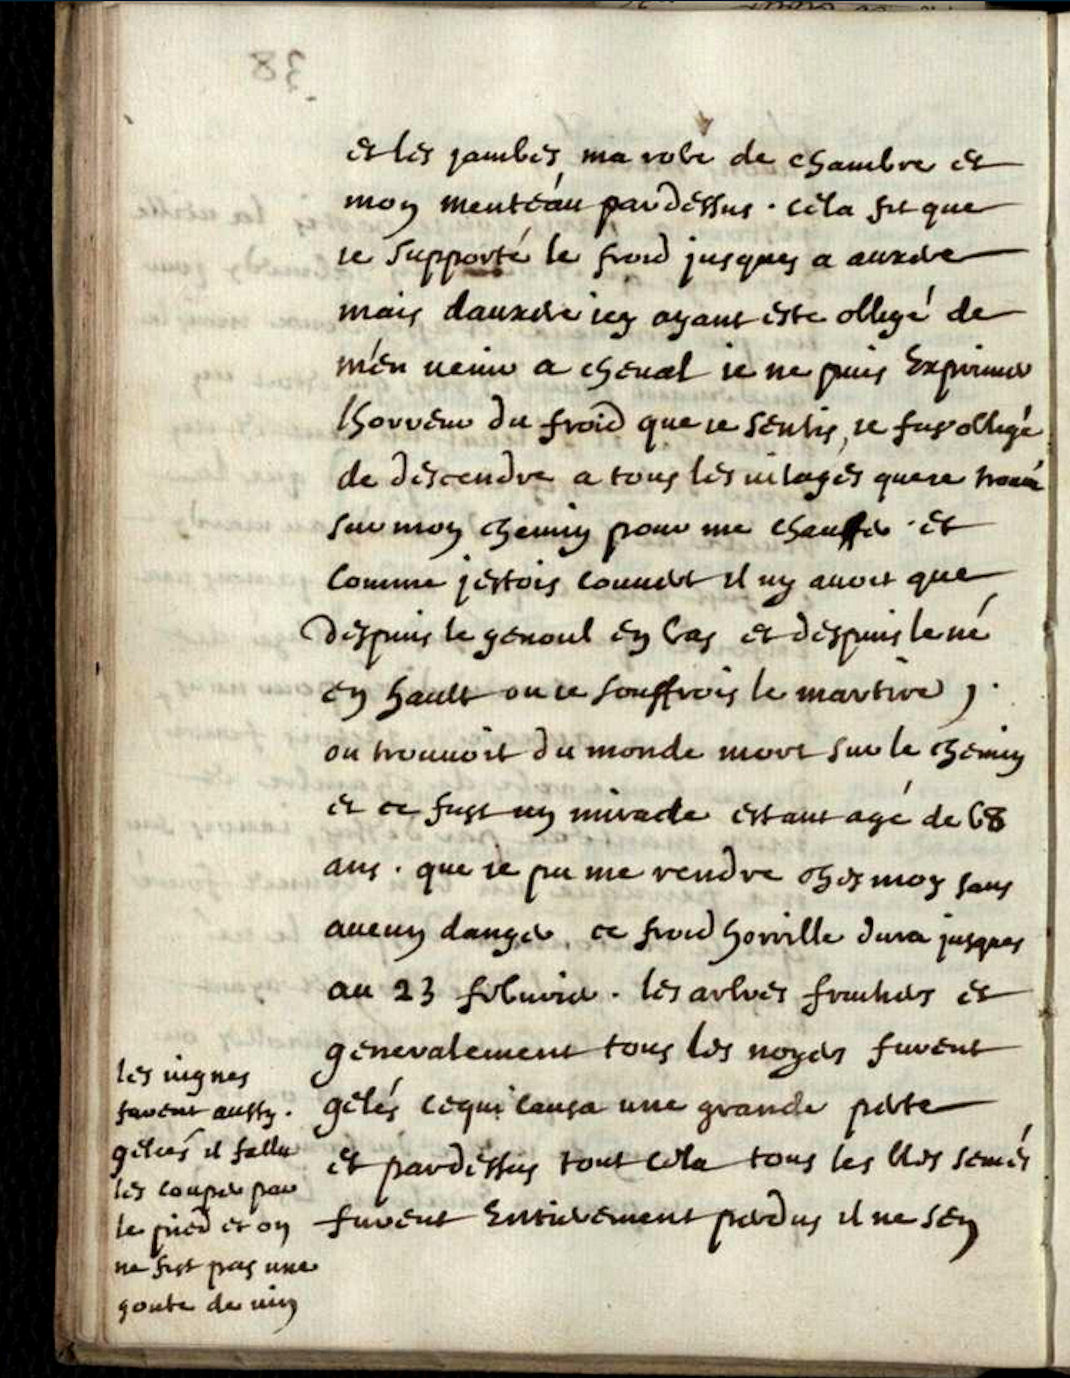 et les jambes, ma robe de chambre et
mon menteau pardessus. cela fit que
ie supporté le froid jusques a auxerre
mais dauxerre icy ayant este obligé de
m'en venir a cheval ie ne puis exprimer
lhorreur du froid que ie sentis, ie fus obligé
de descendre a tous les vilages que ie trouvé
sur mon chemin pour me chauffer. et
comme jestois couvert il ny avoit que
despuis le genoul en bas et despuis le né
en hault ou ie souffrois le martire,
on trouvoit du monde mort sur le chemin
et ce fust un miracle estant agé de 68
ans. que ie pu me rendre ches moy sans
aucun danger. ce froid horrible dura jusques
au 23 febvrier. les arbres fruitiers et
generalement tous les noyers furent
gelés ce qui causa une grande perte
et pardessus tout cela tous les bles semés
furent entierement perdus il ne sen
les vignes
furent aussy.
gelees il fallu
les couper par
le pied et on
ne fist pas une
goute de vin